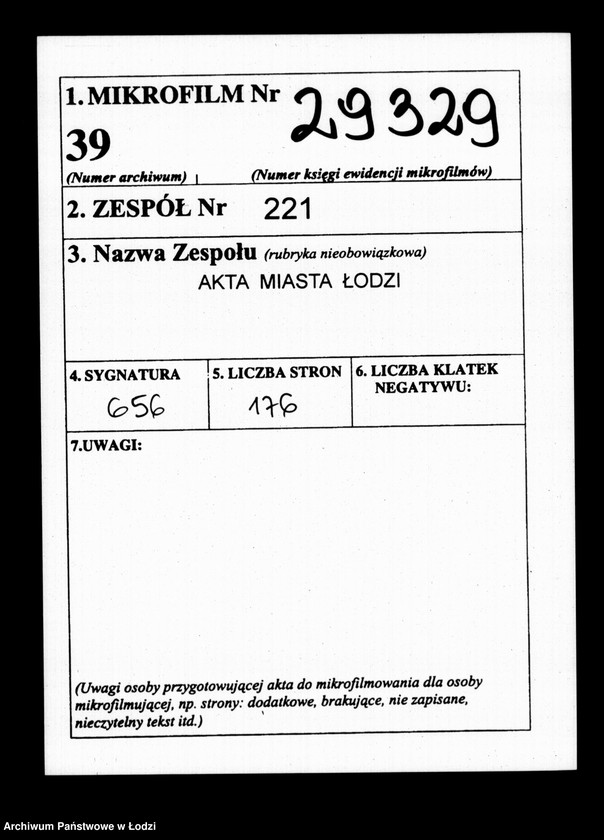 1. MIKROFILM Nr 29329
39
(Numer archiwum) (Numer księgi ewidencji mikrofilmów)
2. ZESPÓŁ Nr 221
3. Nazwa Zespołu (rubryka nieobowiązkowa)
AKTA MIASTA ŁODZI
4. SYGNATURA 5. LICZBA STRON 6. LICZBA KLATEK
NEGATYWU:
656 176
7.UWAGI:
(Uwagi osoby przygotowującej akta do mikrofilmowania dla osoby
mikrofilmującej, np. strony: dodatkowe, brakujące, nie zapisane,
nieczytelny tekst itd.)
Archiwum Państwowe w Łodzi